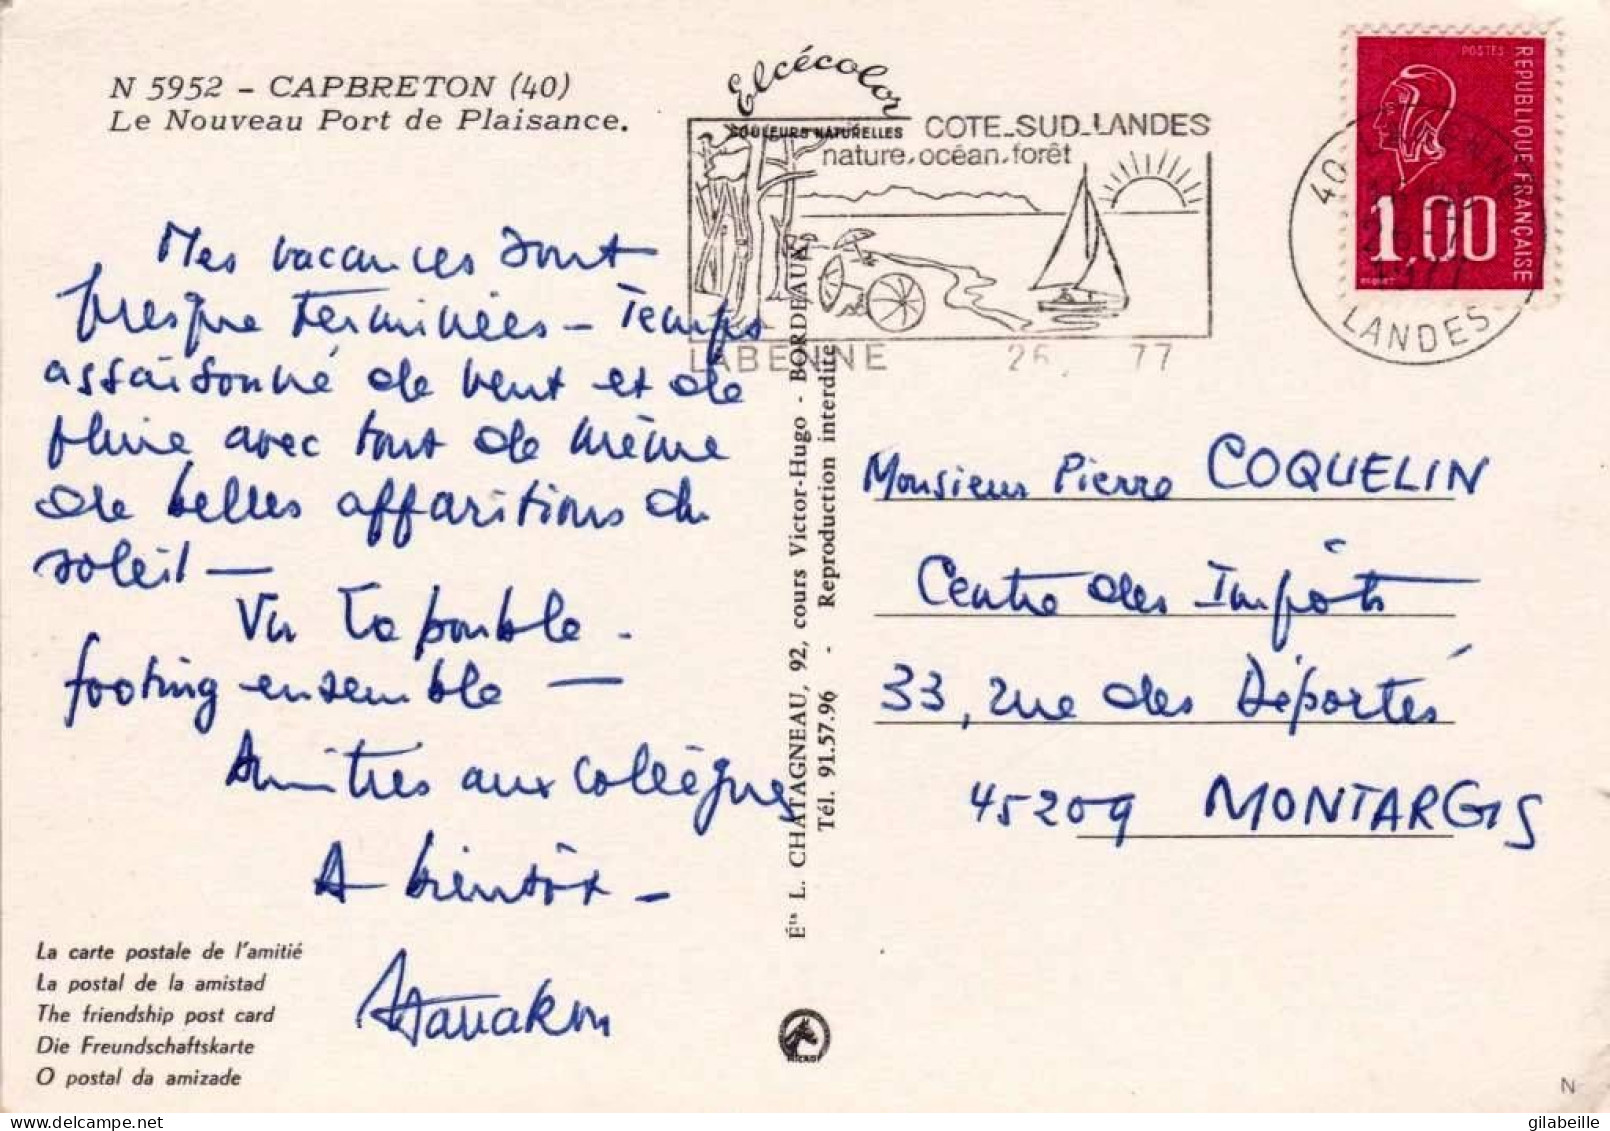 N 5952 - CAPBRETON (40)
Le Nouveau Port de Plaisance.
Elcécolor
COULEURS NATURELLES
COTE_SUD_LANDES
nature.océan.forêt
LABENNE 26. 77
POSTES
REPUBLIQUE FRANÇAISE
1,00
40 LABENNE
26 -7
1977
LANDES
Mes vacances sont
presque terminées - Temps
assaisonné de vent et de
pluie avec tout de même
de belles apparitions du
soleil -
Vu
footing ensemble -
Amitiés aux collègues
A bientôt -
Monsieur Pierre COQUELIN
Centre des Impôts
33, rue des Déportés
45209 MONTARGIS
Éts L. CHATAGNEAU, 92, cours Victor-Hugo - BORDEAUX
Tél. 91.57.96 - Reproduction interdite
La carte postale de l'amitié
La postal de la amistad
The friendship post card
Die Freundschaftskarte
O postal da amizade
N
gilabeille